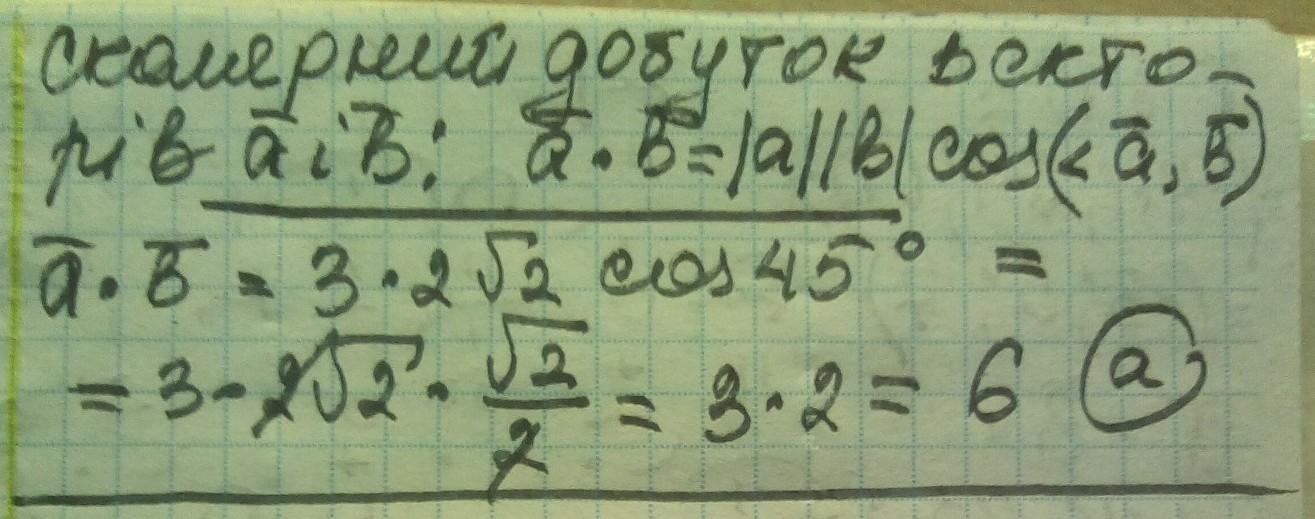 скалярний добуток векто-
рів a̅ i b̅: a̅ · b̅ = |a||b| cos(∠ a̅, b̅)
a̅ · b̅ = 3 · 2√2 cos 45° =
= 3 · 2√2 · √2/2 = 3 · 2 = 6 (a)